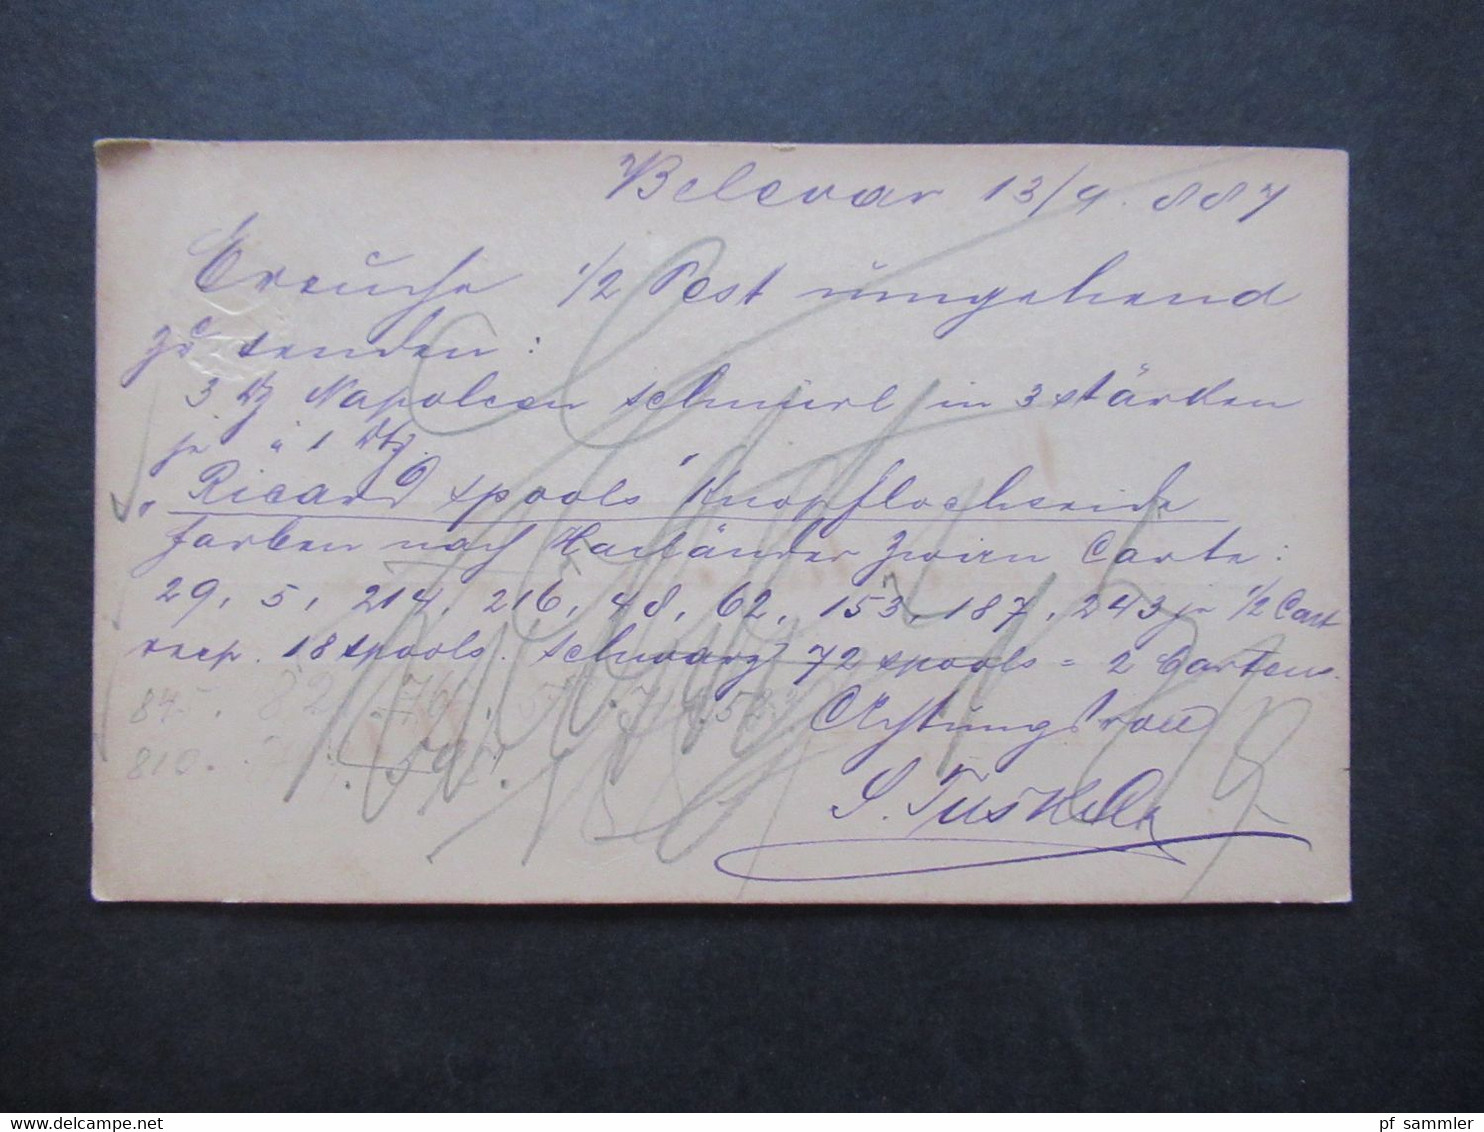 Belovar 13/9. 887
Ersuche 1/2 Post umgehend
zu senden:
3 Dtz Napoleon schnürl in 3 stärken
je à 1 Dtz.
" Ricard spools Knopflochseide
farben nach Harländer Zwirn Carte:
29, 5, 214, 216, 48, 62, 153, 187, 243 je 1/2 Cart
resp. 18 spools. schwarz 72 spools = 2 Cartons.
845. 82
Achtungsvoll
810.
S.
pf_sammler